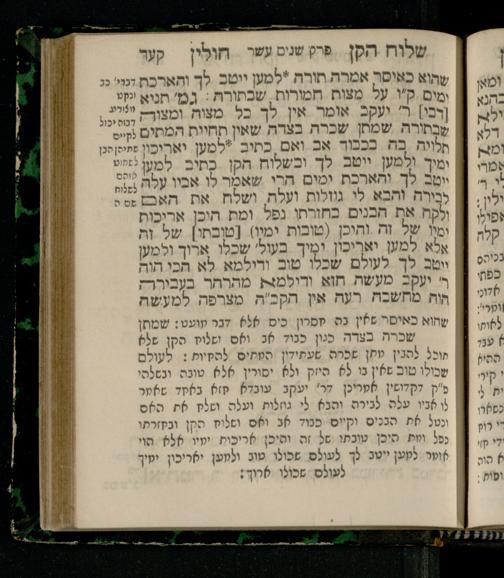 שלוח הקן פרק שנים עשר חולין קעד
שהוא כאיסר אמרה תורה *למען ייטב לך והארכת
ימים ק"ו על מצות חמורות שבתורה: גמ' תניא
[רבי] ר' יעקב אומר אין לך כל מצוה ומצוה
שבתורה שמתן שכרה בצדה שאין תחיית המתים
תלויה בה בכבוד אב ואם כתיב *למען יאריכון
ימיך ולמען ייטב לך ובשלוח הקן כתיב למען
ייטב לך והארכת ימים הרי שאמר לו אביו עלה
לבירה והבא לי גוזלות ועלה ושלח את האם
ולקח את הבנים בחזרתו נפל ומת היכן אריכות
ימיו של זה והיכן (טובות ימיו) [טובתו] של זה
אלא למען יאריכון ימיך בעול' שכלו ארוך ולמען
ייטב לך לעולם שכלו טוב ודילמא לא הכי הוה
ר' יעקב מעשה חזא ודילמא מהרהר בעבירה
הוה מחשבה רעה אין הקב"ה מצרפה למעשה
דברי' כב
שהוא כאיסר שאין בה חסרון כיס אלא דבר מועט: שמתן
שכרה בצדה כגון כבוד אב ואם ושלוח הקן שלא
תוכל להבין מתן שכרה שעתידין המתים להחיות: לעולם
שכולו טוב שאין בו לא היזק ולא יסורין אלא טובה ובשלהי
פ"ק דקדושין אמרינן דר' יעקב עובדא חזא באחד שאמר
לו אביו עלה לבירה והבא לי גוזלות ועלה ושלח את האם
ונטל את הבנים וקיים כבוד אב ואם ושלוח הקן ובחזרתו
נפל ומת היכן טובתו של זה והיכן אריכות ימיו אלא הוי
אומר למען ייטב לך לעולם שכולו טוב ולמען יאריכון ימיך
לעולם שכולו ארוך: